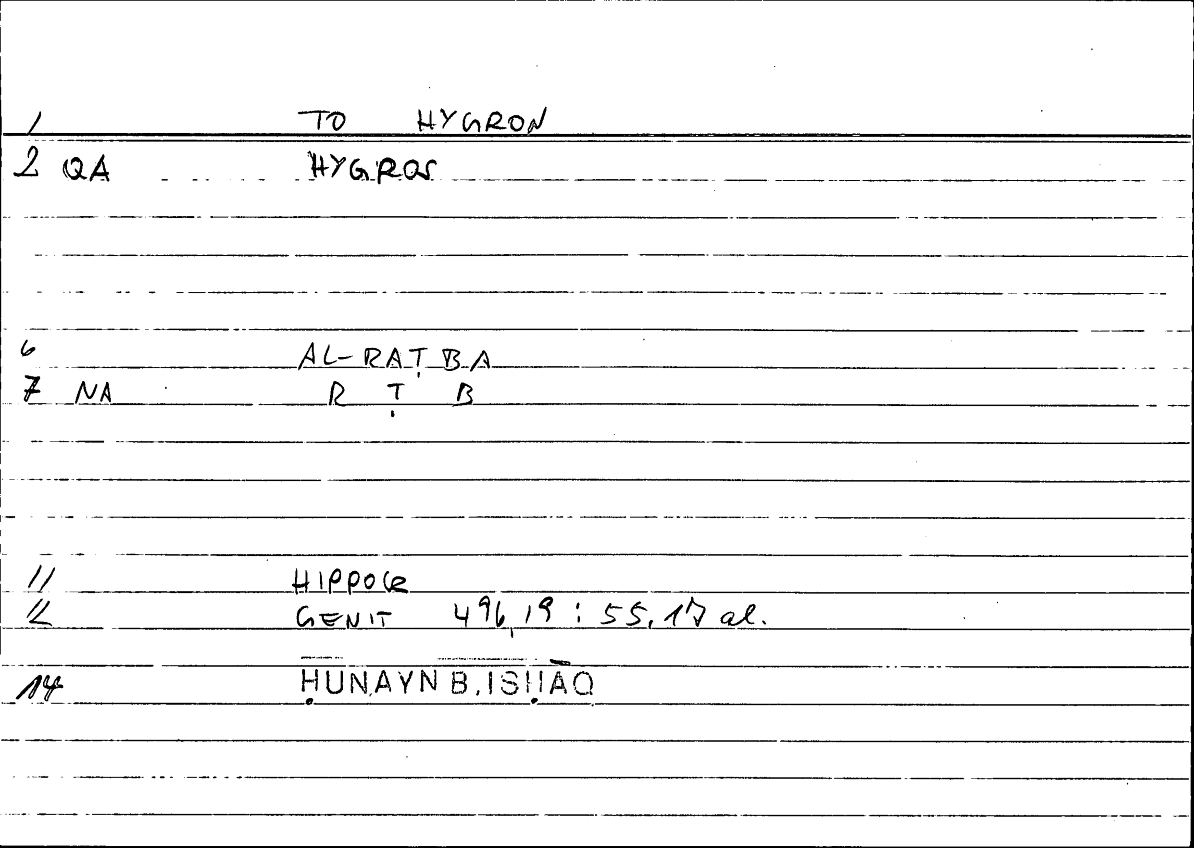 1 TO HYGRON
2 QA HYGROS
6 AL-RAṬBA
7 NA R Ṭ B
11 HIPPOCR
12 GENIT 496,19 : 55,17 al.
14 ḤUNAYN B. ISḤĀQ